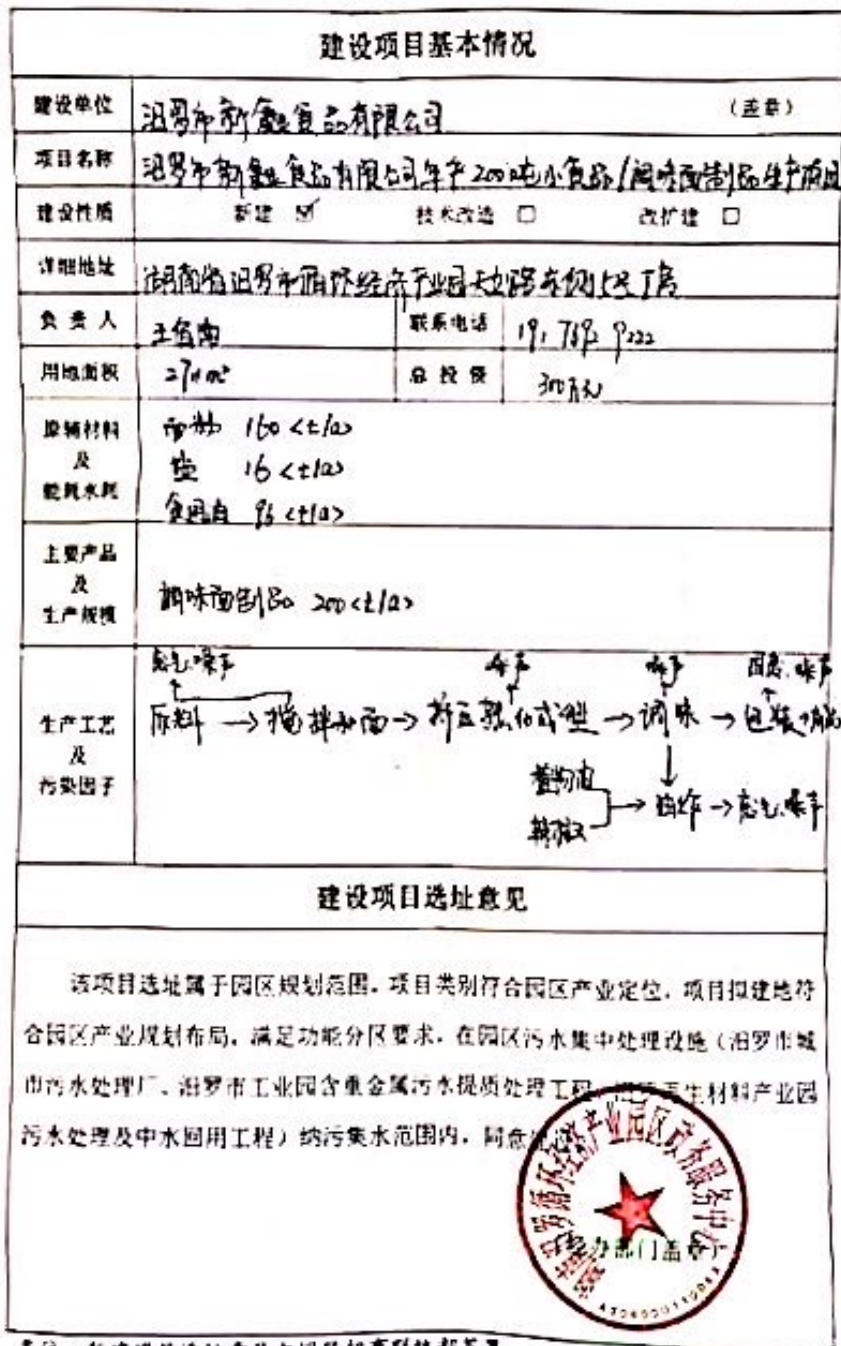 建设项目基本情况
建设单位 汨罗市新鑫食品有限公司 (盖章)
项目名称 汨罗市新鑫食品有限公司年产200吨小食品/调味面制品生产项目
建设性质 新建 ☑ 技术改造 □ 改扩建 □
详细地址 湖南省汨罗市循环经济产业园天立路东侧15号1房
负责人 联系电话
用地面积 总投资 300万元
原辅材料 面粉 160<t/a>
及 盐 16<t/a>
能耗水耗 食用油 96<t/a>
主要产品
及
生产规模
调味面制品 200<t/a>
废气、噪声 噪声 噪声 固废、噪声
原料 → 搅拌和面 → 挤压熟化成型 → 调味 → 包装
生产工艺
及
污染因子
植物油
辣椒 → 油炸 → 废气、噪声
建设项目选址意见
该项目选址属于园区规划范围,项目类别符合园区产业定位,项目拟建地符
合园区产业规划布局,满足功能分区要求,在园区污水集中处理设施(汨罗市城
市污水处理厂、汨罗市工业园含重金属污水提质处理工程、 再生材料产业园
污水处理及中水回用工程)纳污集水范围内,同意
湖南汨罗循环经济产业园区政务服务中心
办部门盖章)